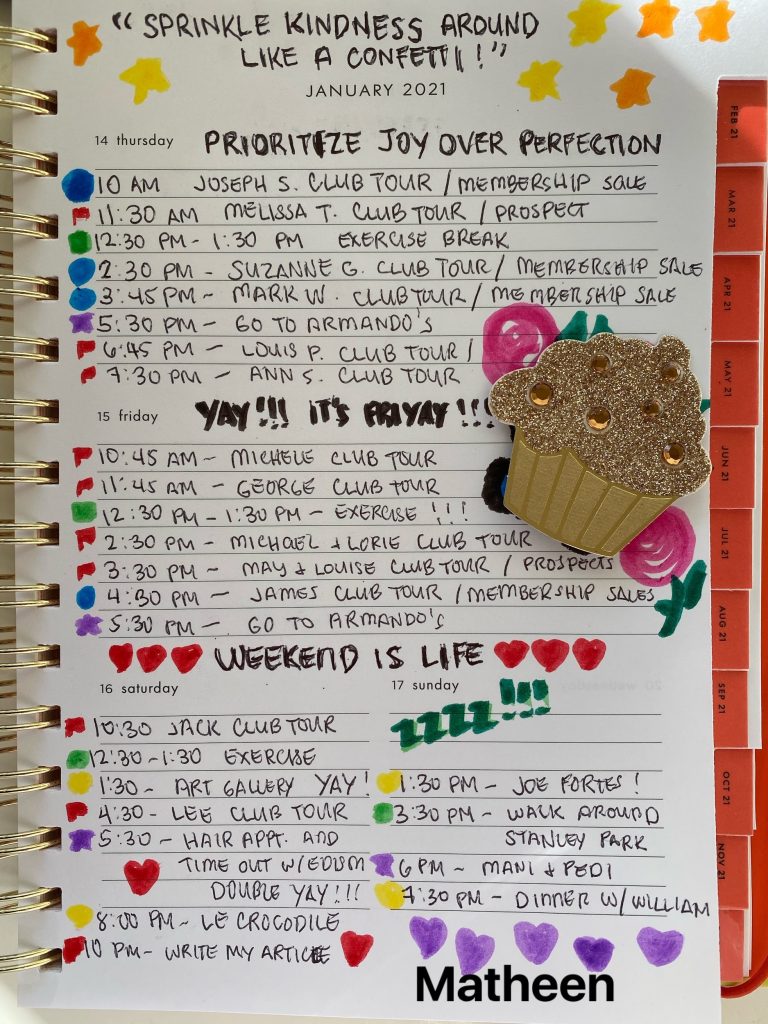 "SPRINKLE KINDNESS AROUND
LIKE A CONFETTI!"
JANUARY 2021
14 thursday PRIORITIZE JOY OVER PERFECTION
10 AM JOSEPH S. CLUB TOUR / MEMBERSHIP SALE
11:30 AM MELISSA T. CLUB TOUR / PROSPECT
12:30 PM - 1:30 PM EXERCISE BREAK
2:30 PM - SUZANNE G. CLUB TOUR / MEMBERSHIP SALE
3:45 PM - MARK W. CLUB TOUR / MEMBERSHIP SALE
5:30 PM - GO TO ARMANDO'S
6:45 PM - LOUIS P. CLUB TOUR /
7:30 PM - ANN S. CLUB TOUR
15 friday YAY!!! IT'S FRIYAY!!!
10:45 AM - MICHELE CLUB TOUR
11:45 AM - GEORGE CLUB TOUR
12:30 PM - 1:30 PM - EXERCISE !!!
2:30 PM - MICHAEL & LORIE CLUB TOUR
3:30 PM - MAY & LOUISE CLUB TOUR / PROSPECTS
4:30 PM - JAMES CLUB TOUR / MEMBERSHIP SALES
5:30 PM - GO TO ARMANDO'S
WEEKEND IS LIFE
16 saturday
10:30 JACK CLUB TOUR
12:30 - 1:30 EXERCISE
1:30 - ART GALLERY YAY!
4:30 - LEE CLUB TOUR
5:30 - HAIR APPT. AND
TIME OUT W/EDUM
DOUBLE YAY!!!
8:00 PM - LE CROCODILE
10 PM - WRITE MY ARTICLE
17 sunday
ZZZZ!!!
1:30 PM - JOE FORTES!
3:30 PM - WALK AROUND
STANLEY PARK
6 PM - MANI & PEDI
7:30 PM - DINNER W/ WILLIAM
Matheen
FEB 21
MAR 21
APR 21
MAY 21
JUN 21
JUL 21
AUG 21
SEP 21
OCT 21
NOV 21